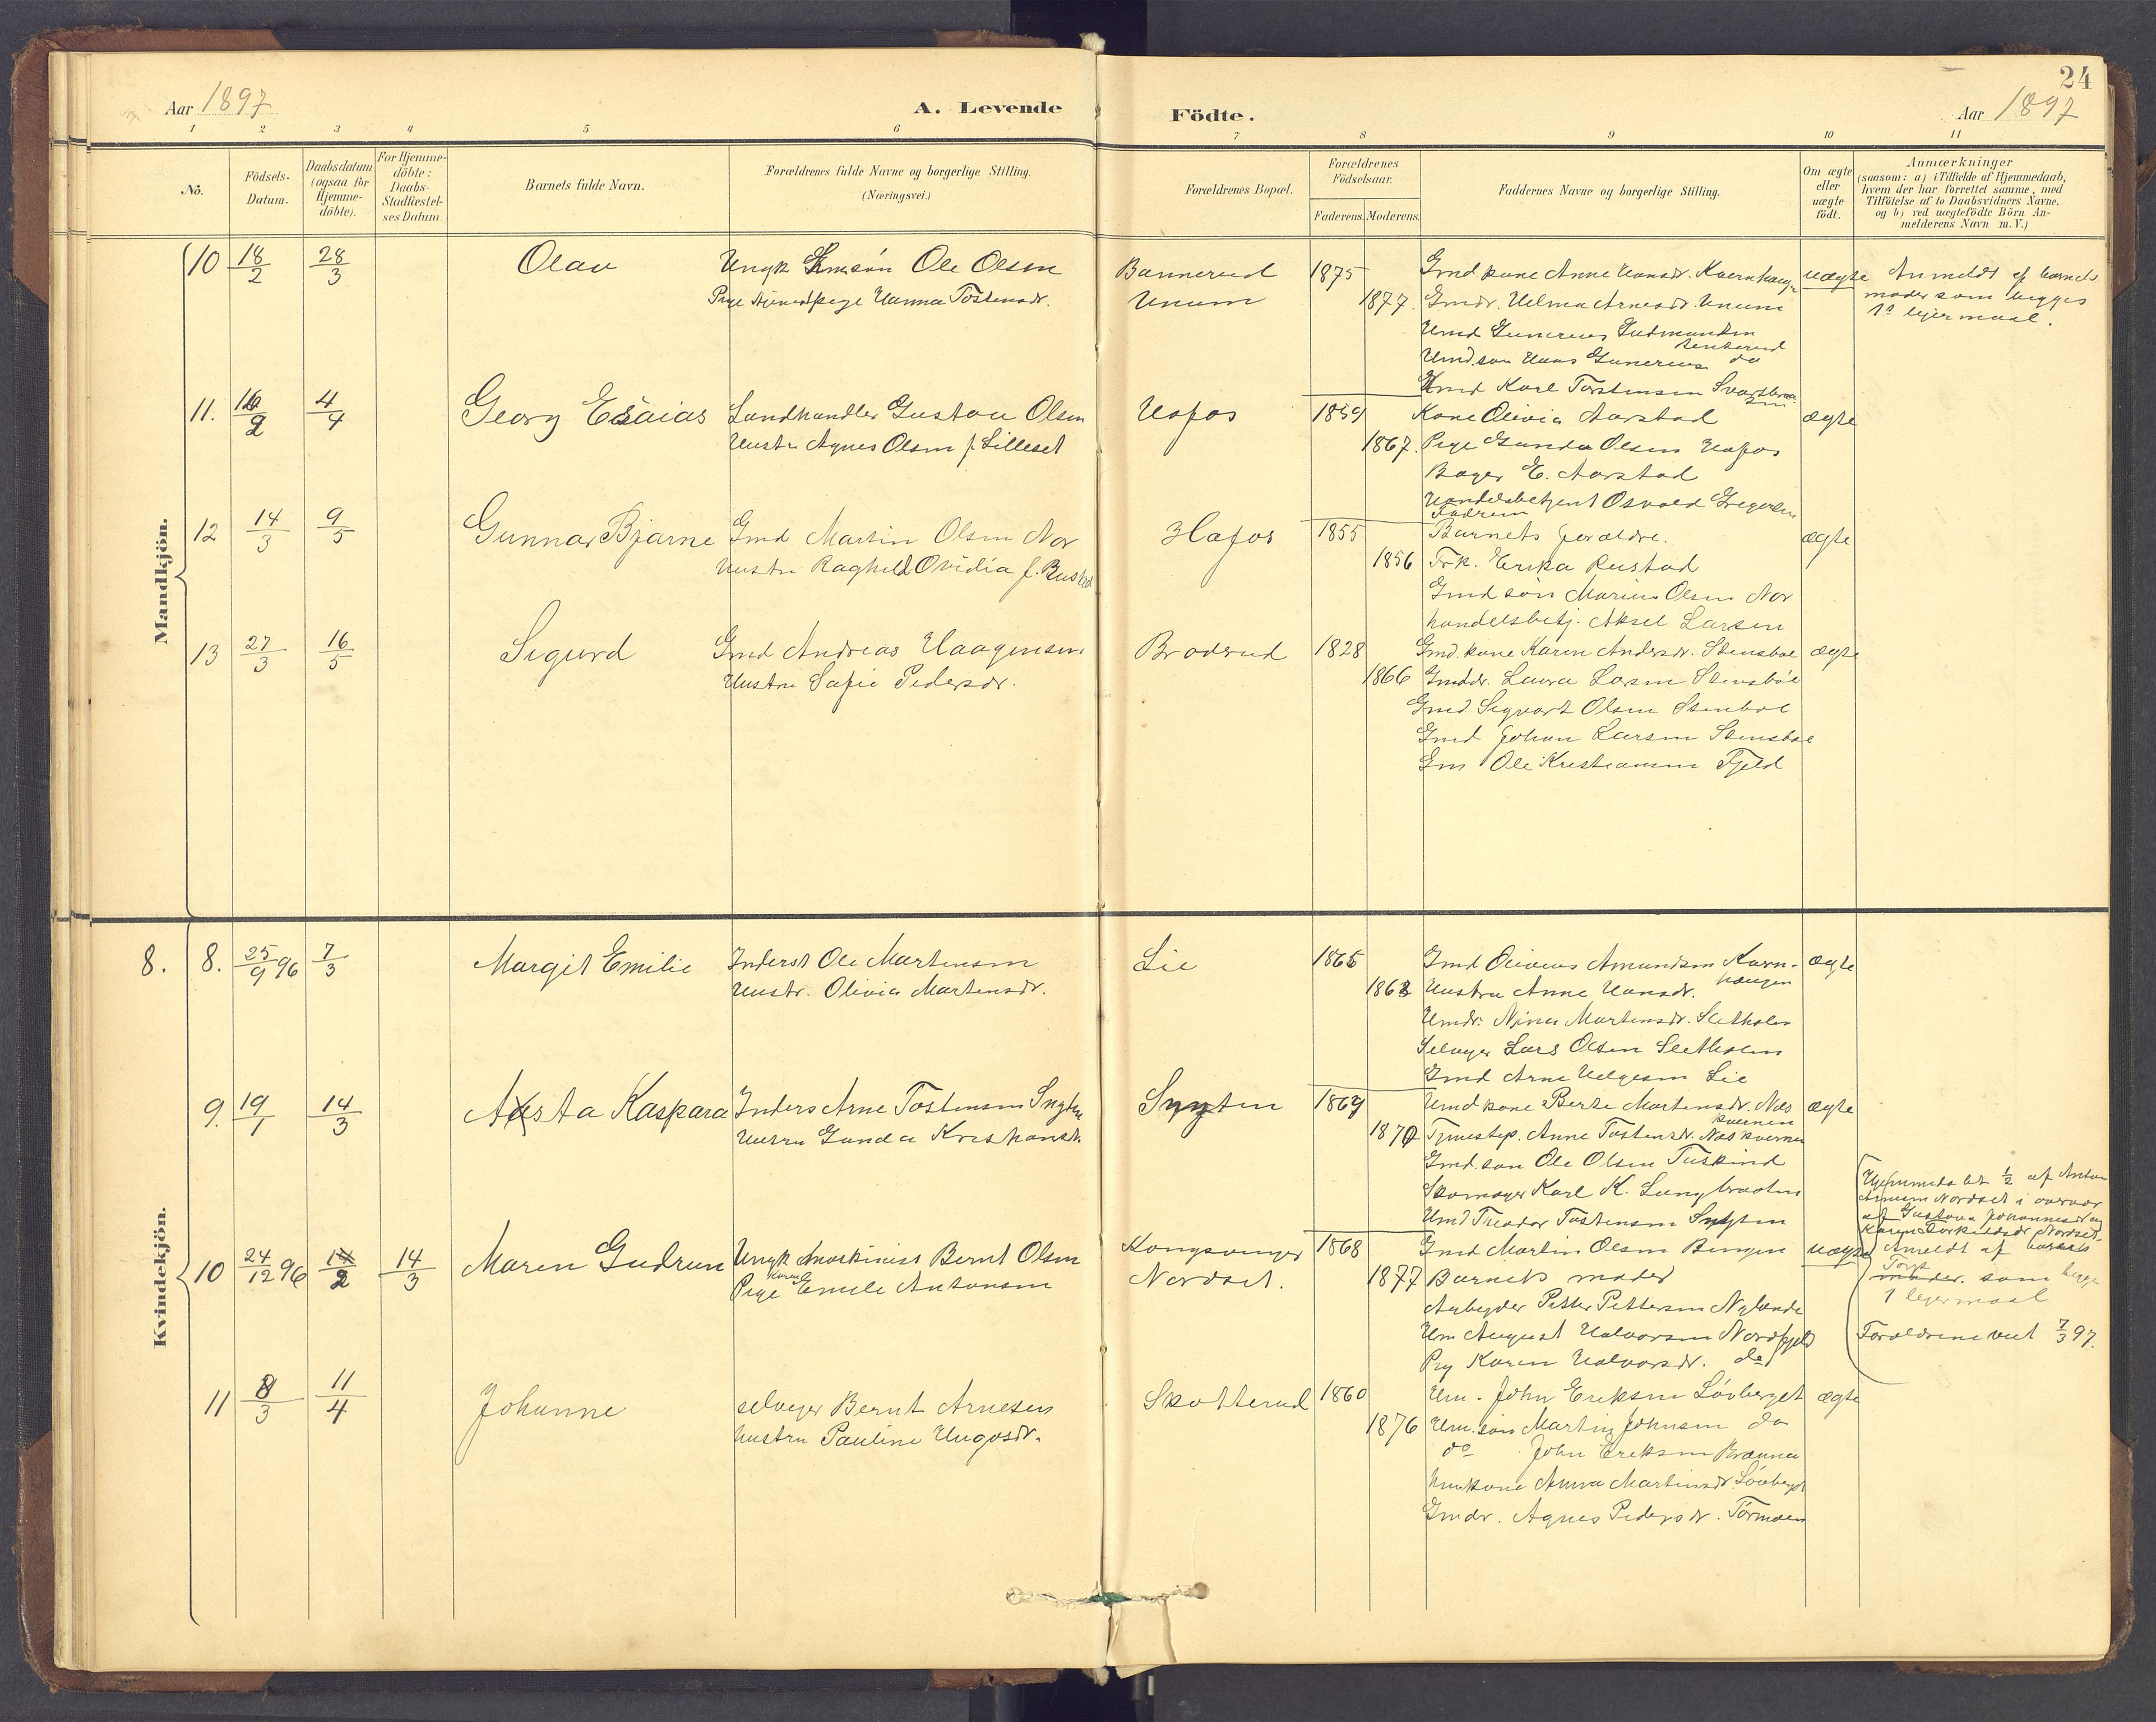 24
Aar 1897
A. Levende
Födte.
Aar 1897
1 2 3 4 5 6 7 8 9 10 11
No.
Födsels-Datum.
Daabsdatum (ogsaa for Hjemme-döbte).
For Hjemme-döbte: Daabs-Stadfæstel-ses Datum.
Barnets fulde Navn.
Forældrenes fulde Navne og borgerlige Stilling. (Næringsvei.)
Forældrenes Bopæl.
Forældrenes Födselsaar.
Faderens. Moderens.
Faddernes Navne og borgerlige Stilling.
Om ægte eller uægte födt.
Anmærkninger
(saasom: a) i Tilfælde af Hjemmedaab,
hvem der har forrettet samme, med
Tilföielse af to Daabsvidners Navne,
og b) ved uægtefödte Börn An-
melderens Navn m. V.)
Mandkjön.
10 18/2 28/3 Olav
Ungk Gmsön Ole Olsen
Pige Hanna Tostensdr.
Bannerud
Unum
1875
1877
Gmd kone Anne Hansdr. Kvernhaugen
Gmdr. Helma Arnesdr. Unum
Hmd Gunerius Gudmundsen
Hmd. søn Hans Gunerius do
Hmd Karl Torstensen
uægte
Anmeldt af barnets
moder som begges
1ste lejermaal.
11. 16/2 4/4 Georg Esaias
Landhandler Gustav Olsen
Hustru Agnes Olsen f. Lilleset
Hafos
1859
1867.
Kone Olivia Aarstad
Pige Gunda Olsen Hafos
Bager E. Aarstad
Handelsbetjent Osvald Gregersen
Fadren
ægte
12 14/3 9/5 Gunnar Bjarne
Gmd Martin Olsen Nor
Hustru Raghild Ovidia f. Rustad
Hafos
1855
1856
Barnets forældre.
Frk. Erika Rustad
Gmd søn Marius Olsen Nor
handelsbetj. Aksel Larsen
ægte
13 27/3 16/5 Sigurd
Gmd Andreas Haagensen
Hustru Safie Pedersdr.
Broderud
1828
1866
Gmd. kone Karen Andersdr. Stensbøl
Gmddr. Laura Larsen Stensbøl
Gmd. Sigvart Olsen Stenbøl
Gmd Johan Larsen Stensbøl
Gm Ole Kristiansen Fjeld
ægte
Kvindekjön.
8. 8. 25/9 96 7/3 Margit Emilie
Inderst Ole Martensen
Hustr. Olivia Martensdr.
Lie
1865
1863
Gmd Olivius Amundsen Kvern-
haugen
Hustru Anne Hansdr.
Hmdr. Nina Martensdr. Sletholen
Selvejer Lars Olsen Sletholen
Gmd Arne Helgesen Lie
ægte
9. 19/1 14/3 Aasta Kaspara
Inders Arne Tostensen Snyten
Hustru Gunda Kristiansdr.
Snyten
1869
1870
Hmd kone Berte Martensdr. Næs
kvernen
Tjenestep. Anne Tostensdr. Næskvernen
Gmd. søn Ole Olsen Tuskind
Skomager Karl K. Langbraaten
Hmd Theodor Tostensen Snyten
ægte
10 24/12 96 14/2 14/3 Maren Gudrun
Ungk maskinist Bernt Olsen
Pige Emilie Antonsen
Kongsvinger
Nordset.
1868
1877
Gmd Martin Olsen Bingen
Barnets moder
Arbeyder Petter Pettersen Nylende
Hm August Halvorsen Nordfjeld
Pig Karen Halvorsdr. do
uægte
Hjemmedøbt 1/2 af Anton
Arnesen Nordset i overvær
af Gustava Johannesdr og
Karen Torkildsdr Nordset.
Anmeldt af barnets
moder. som begge
1 lejermaal
Forældrene viet 7/3 97.
11 8/3 11/4 Johanne
selvejer Bernt Arnesen
hustru Pauline Hugosdr.
Skotterud
1860
1876
Hm. John Eriksen Løvberget
Hm. søn Martin Johnsen do
do John Eriksen Brænna
Hmkone Anna Martinsdr. Løvberget
Gmdr. Agnes Pedersdr. Tormoen
ægte